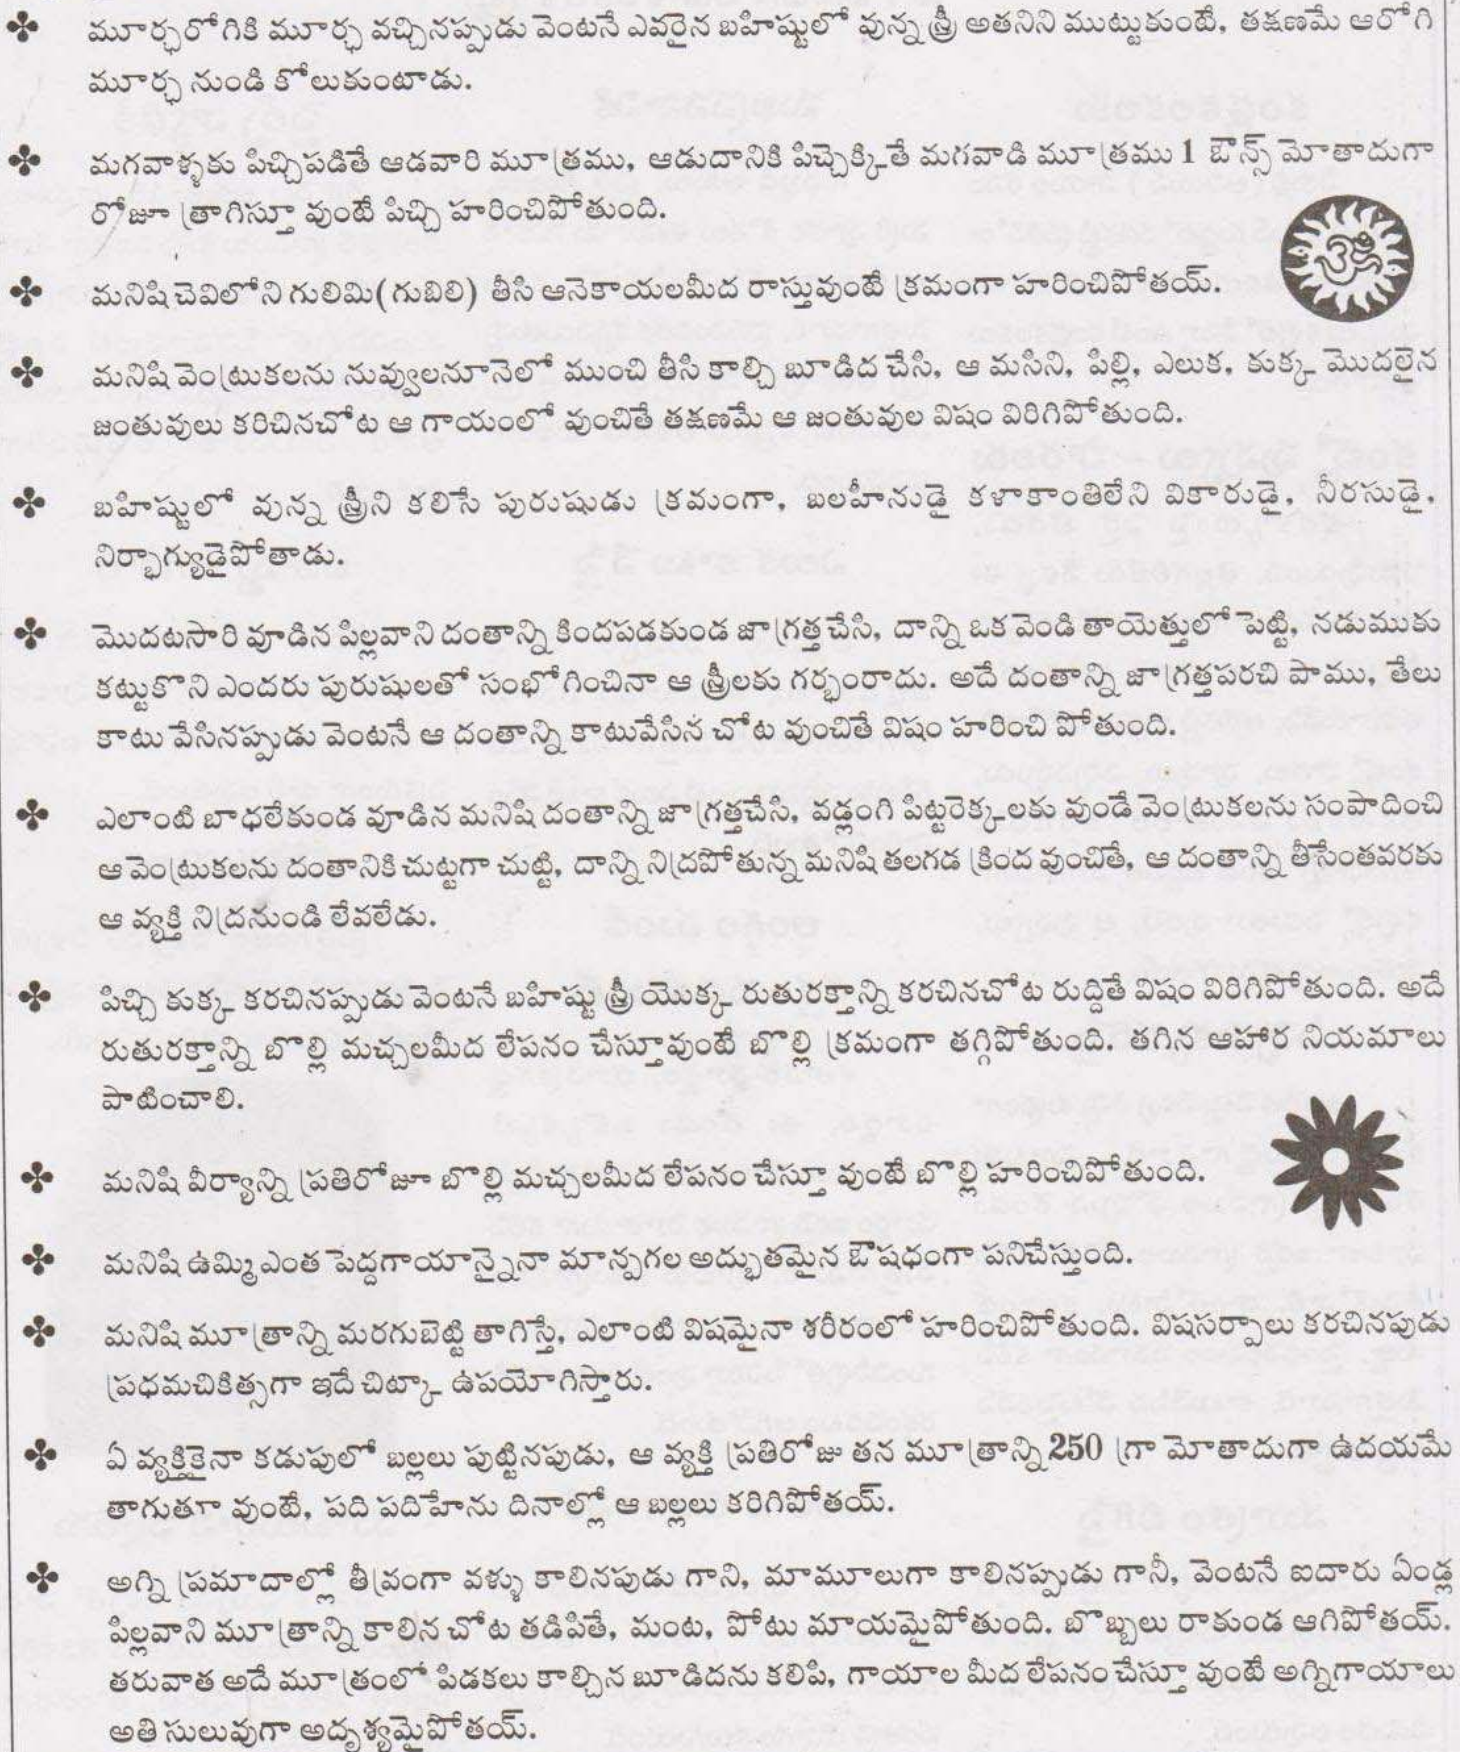 మూర్ఛరోగికి మూర్ఛ వచ్చినప్పుడు వెంటనే ఎవరైన బహిష్టులో వున్న స్త్రీ అతనిని ముట్టుకుంటే, తక్షణమే ఆరోగి
మూర్ఛ నుండి కోలుకుంటాడు.
మగవాళ్ళకు పిచ్చిపడితే ఆడవారి మూత్రము, ఆడుదానికి పిచ్చెక్కితే మగవాడి మూత్రము 1 ఔన్స్ మోతాదుగా
రోజూ త్రాగిస్తూ వుంటే పిచ్చి హరించిపోతుంది.
మనిషి చెవిలోని గులిమి(గుబిలి) తీసి ఆనెకాయలమీద రాస్తువుంటే క్రమంగా హరించిపోతయ్.
మనిషి వెంట్రుకలను నువ్వులనూనెలో ముంచి తీసి కాల్చి బూడిద చేసి, ఆ మసిని, పిల్లి, ఎలుక, కుక్క మొదలైన
జంతువులు కరిచినచోట ఆ గాయంలో వుంచితే తక్షణమే ఆ జంతువుల విషం విరిగిపోతుంది.
బహిష్టులో వున్న స్త్రీని కలిసే పురుషుడు క్రమంగా, బలహీనుడై కళాకాంతిలేని వికారుడై, నీరసుడై,
నిర్భాగ్యుడైపోతాడు.
మొదటసారి వూడిన పిల్లవాని దంతాన్ని కిందపడకుండ జాగ్రత్తచేసి, దాన్ని ఒక వెండి తాయెత్తులో పెట్టి, నడుముకు
కట్టుకొని ఎందరు పురుషులతో సంభోగించినా ఆ స్త్రీలకు గర్భంరాదు. అదే దంతాన్ని జాగ్రత్తపరచి పాము, తేలు
కాటు వేసినప్పుడు వెంటనే ఆ దంతాన్ని కాటువేసిన చోట వుంచితే విషం హరించి పోతుంది.
ఎలాంటి బాధలేకుండ వూడిన మనిషి దంతాన్ని జాగ్రత్తచేసి, వడ్లంగి పిట్టరెక్కలకు వుండే వెంట్రుకలను సంపాదించి
ఆ వెంట్రుకలను దంతానికి చుట్టగా చుట్టి, దాన్ని నిద్రపోతున్న మనిషి తలగడ క్రింద వుంచితే, ఆ దంతాన్ని తీసేంతవరకు
ఆ వ్యక్తి నిద్రనుండి లేవలేడు.
పిచ్చి కుక్క కరచినప్పుడు వెంటనే బహిష్టు స్త్రీ యొక్క రుతురక్తాన్ని కరచినచోట రుద్దితే విషం విరిగిపోతుంది. అదే
రుతురక్తాన్ని బొల్లి మచ్చలమీద లేపనం చేస్తూవుంటే బొల్లి క్రమంగా తగ్గిపోతుంది. తగిన ఆహార నియమాలు
పాటించాలి.
మనిషి వీర్యాన్ని ప్రతిరోజూ బొల్లి మచ్చలమీద లేపనం చేస్తూ వుంటే బొల్లి హరించిపోతుంది.
మనిషి ఉమ్మి ఎంత పెద్దగాయాన్నైనా మాన్పగల అద్భుతమైన ఔషధంగా పనిచేస్తుంది.
మనిషి మూత్రాన్ని మరగుబెట్టి తాగిస్తే, ఎలాంటి విషమైనా శరీరంలో హరించిపోతుంది. విషసర్పాలు కరచినపుడు
ప్రధమచికిత్సగా ఇదే చిట్కా ఉపయోగిస్తారు.
ఏ వ్యక్తికైనా కడుపులో బల్లలు పుట్టినపుడు, ఆ వ్యక్తి ప్రతిరోజు తన మూత్రాన్ని 250 గ్రా మోతాదుగా ఉదయమే
తాగుతూ వుంటే, పది పదిహేను దినాల్లో ఆ బల్లలు కరిగిపోతయ్.
అగ్ని ప్రమాదాల్లో తీవ్రంగా వళ్ళు కాలినపుడు గాని, మామూలుగా కాలినప్పుడు గానీ, వెంటనే ఐదారు ఏండ్ల
పిల్లవాని మూత్రాన్ని కాలిన చోట తడిపితే, మంట, పోటు మాయమైపోతుంది. బొబ్బలు రాకుండ ఆగిపోతయ్.
తరువాత అదే మూత్రంలో పిడకలు కాల్చిన బూడిదను కలిపి, గాయాల మీద లేపనం చేస్తూ వుంటే అగ్నిగాయాలు
అతి సులువుగా అదృశ్యమైపోతయ్.